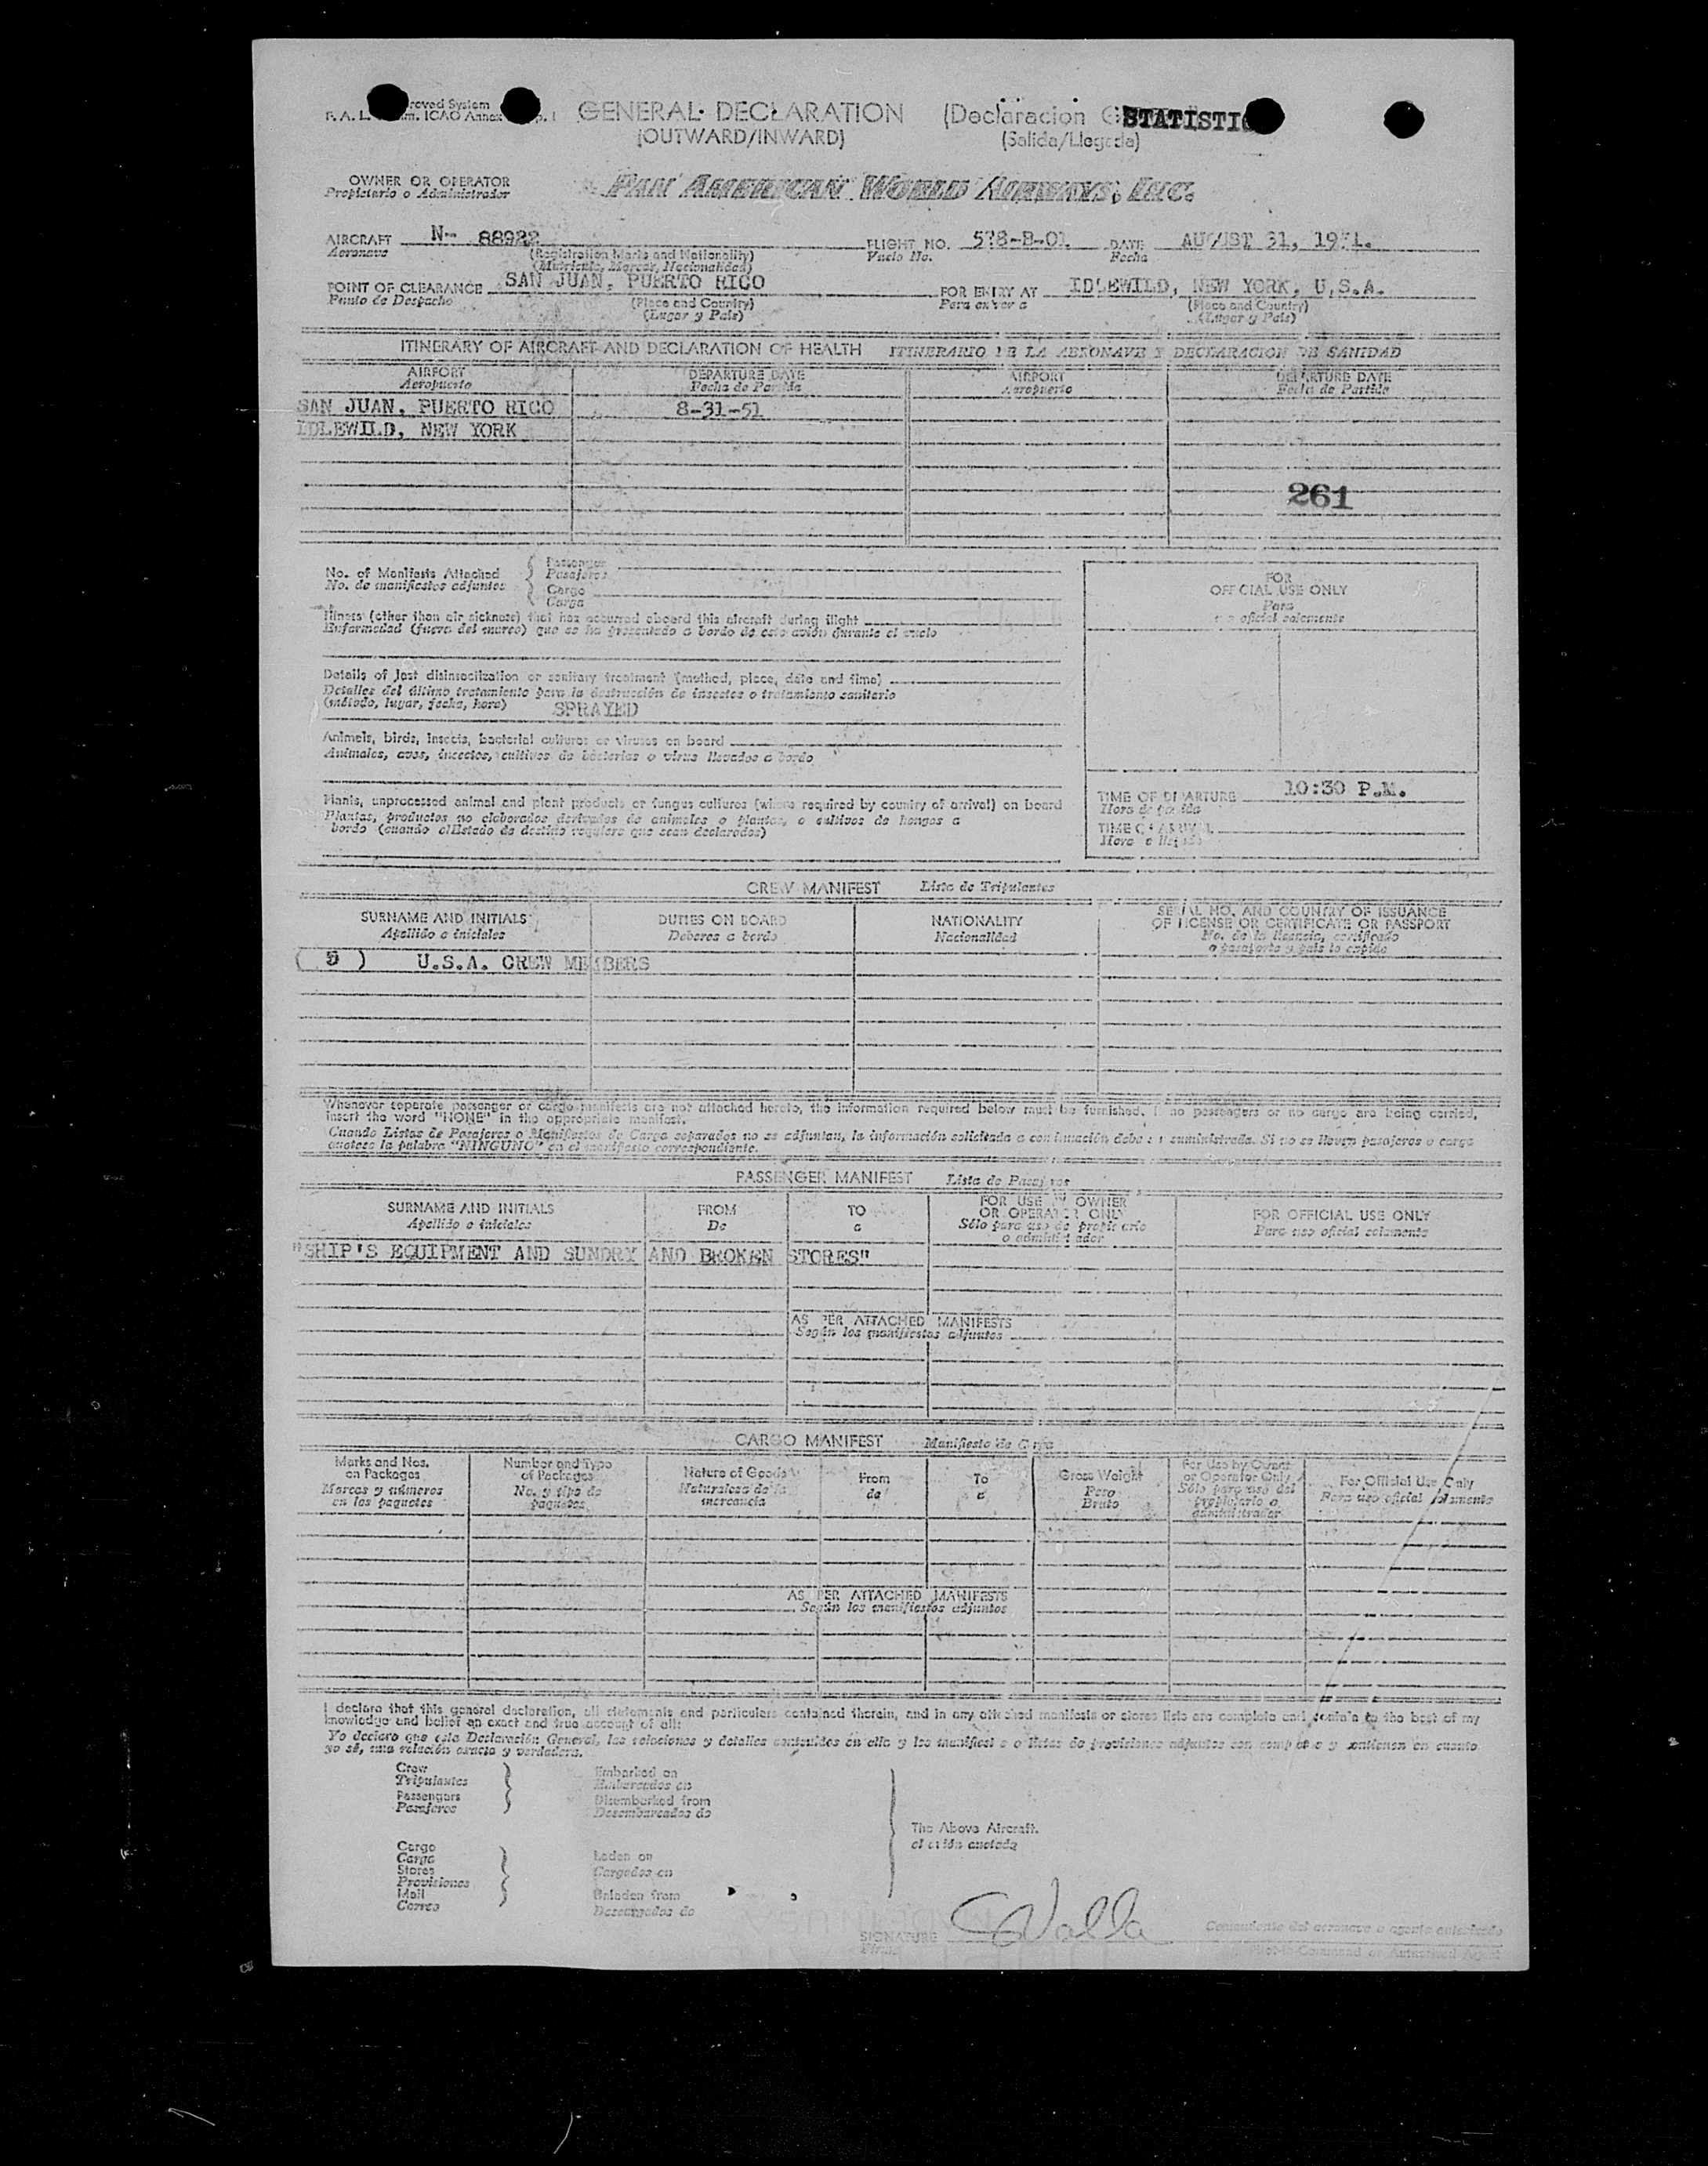 GENERAL DECLARATION (Declaracion STATISTIC
(OUTWARD/INWARD) (Salida/Llegada)
OWNER OR OPERATOR PAN AMERICAN WORLD AIRWAYS, INC.
Propietario o Administrador
AIRCRAFT N- 88922 FLIGHT NO. DATE AUGUST 31,
Aeronave (Registration Marks and Nationality) Vuelo No. Fecha
(Matricula, Marcas, Nacionalidad)
POINT OF CLEARANCE SAN JUAN, PUERTO RICO FOR ENTRY AT IDLEWILD, NEW YORK, U.S.A.
Punto de Despacho (Place and Country) Para entrar a (Place and Country)
(Lugar y Pais) (Lugar y Pais)
ITINERARY OF AIRCRAFT AND DECLARATION OF HEALTH ITINERARIO DE LA AERONAVE Y DECLARACION DE SANIDAD
AIRPORT DEPARTURE DATE AIRPORT DEPARTURE DATE
Aeropuerto Fecha de Partida Aeropuerto Fecha de Partida
SAN JUAN, PUERTO RICO 8-31-51
IDLEWILD, NEW YORK
261
No. of Manifests Attached Passenger
No. de manifiestos adjuntos Pasajeros
Cargo
Carga
FOR
OFFICIAL USE ONLY
Para
uso oficial solamente
Illness (other than air sickness) that has occurred aboard this aircraft during flight
Enfermedad (fuera del mareo) que se ha presentado a bordo de este avión durante el vuelo
Details of last disinsectization or sanitary treatment (method, place, date and time)
Detalles del último tratamiento para la destrucción de insectos o tratamiento sanitario
(método, lugar, fecha, hora) SPRAYED
Animals, birds, insects, bacterial cultures or viruses on board
Animales, aves, insectos, cultivos de bacterias o virus llevados a bordo
Plants, unprocessed animal and plant products or fungus cultures (where required by country of arrival) on board
Plantas, productos no elaborados derivados de animales o plantas, o cultivos de hongos a
bordo (cuando el Estado de destino requiere que sean declarados)
TIME OF DEPARTURE 10:30 P.M.
Hora de partida
TIME OF ARRIVAL
Hora de llegada
CREW MANIFEST Lista de Tripulantes
SURNAME AND INITIALS DUTIES ON BOARD NATIONALITY SERIAL NO. AND COUNTRY OF ISSUANCE
OF LICENSE OR CERTIFICATE OR PASSPORT
Apellido e iniciales Deberes a bordo Nacionalidad No. de la licencia, certificado
o pasaporte y pais lo expide
( 5 ) U.S.A. CREW MEMBERS
Whenever separate passenger or cargo manifests are not attached hereto, the information required below must be furnished. If no passengers or no cargo are being carried,
insert the word "NONE" in the appropriate manifest.
Cuando Listas de Pasajeros o Manifiestos de Carga separados no se adjuntan, la información solicitada a continuación debe ser suministrada. Si no se llevan pasajeros o carga
anotese la palabra "NINGUNO" en el manifiesto correspondiente.
PASSENGER MANIFEST Lista de Pasajeros
SURNAME AND INITIALS FROM TO FOR USE BY OWNER
OR OPERATOR ONLY FOR OFFICIAL USE ONLY
Apellido e iniciales De a Sólo para uso de propietario
o administrador Para uso oficial solamente
"SHIP'S EQUIPMENT AND SUNDRY AND BROKEN STORES"
AS PER ATTACHED MANIFESTS
Según los manifiestos adjuntos
CARGO MANIFEST Manifiesto de Carga
Marks and Nos. on Packages Number and Type of Packages Nature of Goods From To Gross Weight For Use by Owner or Operator Only For Official Use Only
Marcas y números en los paquetes No. y tipo de paquetes Naturaleza de la mercancia de a Peso Bruto Sólo para uso del propietario o administrador Para uso oficial solamente
AS PER ATTACHED MANIFESTS
Según los manifiestos adjuntos
I declare that this general declaration, all statements and particulars contained therein, and in any attached manifests or stores lists are complete and contain to the best of my
knowledge and belief an exact and true account of all:
Yo declaro que esta Declaración General, las relaciones y detalles contenidos en ella y los manifiestos o listas de provisiones adjuntos son completos y contienen en cuanto
yo sé, una relación exacta y verdadera.
Crew Embarked on
Tripulantes Embarcados en
Passengers Disembarked from
Pasajeros Desembarcados de
The Above Aircraft.
el avión anotado
Cargo
Carga Laden on
Stores Cargados en
Provisiones
Mail Unladen from
Correo Descargados de
SIGNATURE Comandante del aeronave o agente autorizado
Firma Pilot-in-Command or Authorized Agent